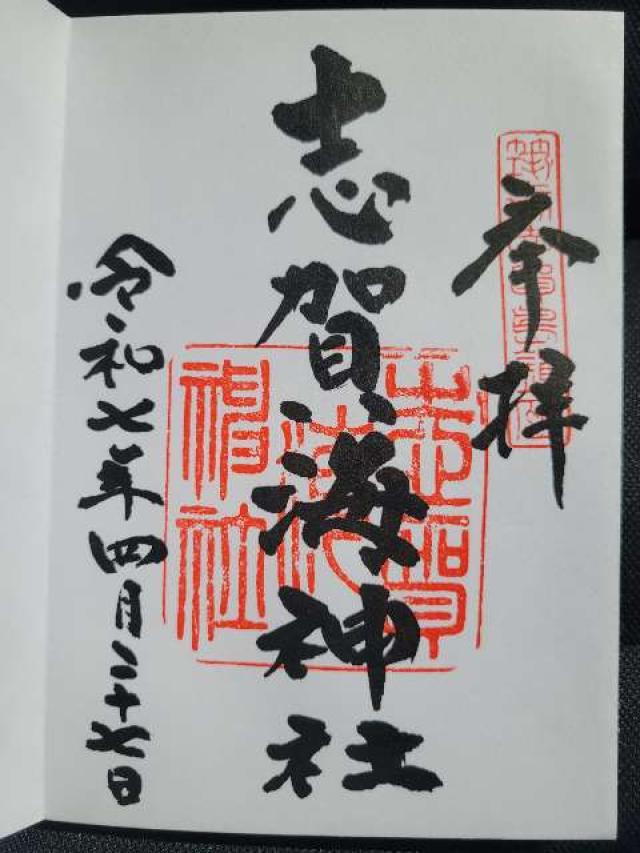 奉拝
志賀海神社
令和七年四月二十七日
志賀海神社